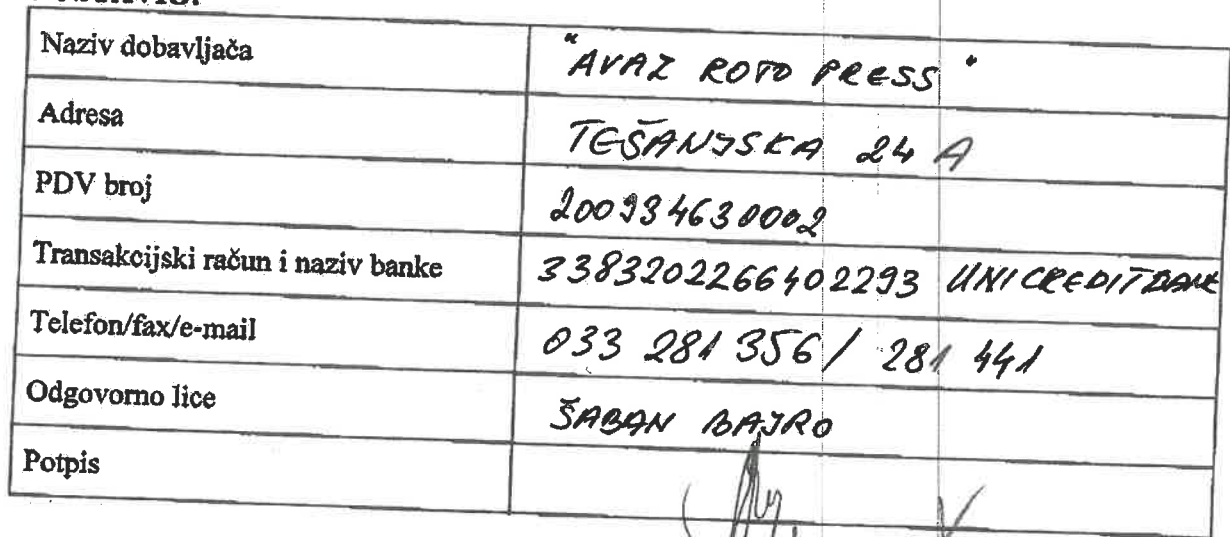 Naziv dobavljača "AVAZ ROTO PRESS"
Adresa TEŠANJSKA 24 A
PDV broj 200934630002
Transakcijski račun i naziv banke 3383202266402293 UNICREDIT BANK
Telefon/fax/e-mail 033 281 356 / 281 441
Odgovorno lice ŠABAN BAJRO
Potpis